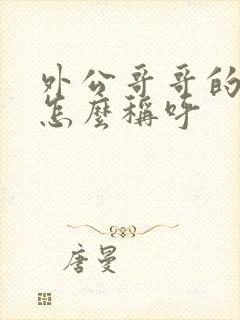 外公哥哥的
怎麼稱呼
唐曼